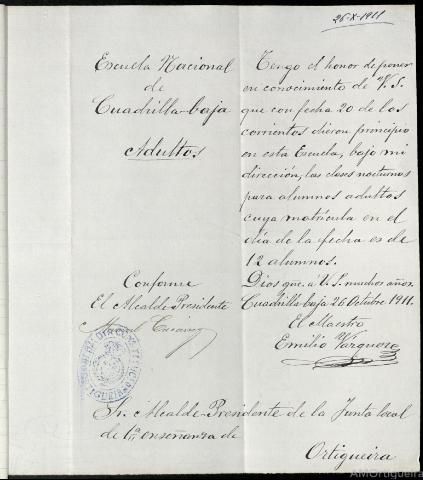 26-X-1911
Escuela Nacional
de
Cuadrilla-baja
Adultos
Tengo el honor de poner
en conocimiento de V. S.
que con fecha 20 de los
corrientes dieron principio
en esta Escuela, bajo mi
dirección, las clases nocturnas
para alumnos adultos
cuya matrícula en el
día de la fecha es de
12 alumnos.
Dios gue. á V. S. muchos años.
Cuadrilla-baja 26 Octubre 1911.
El Maestro
Emilio
Conforme
El Alcalde-Presidente
Sr. Alcalde-Presidente de la Junta local
de 1ª enseñanza de
Ortigueira
AMOrtigueira